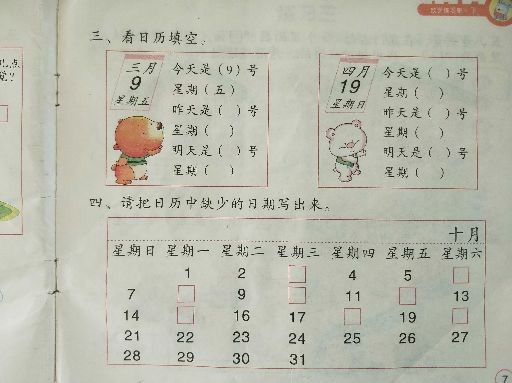 三、看日历填空。
三月
9
星期五
今天是（9）号
星期（五）
昨天是（ ）号
星期（ ）
明天是（ ）号
星期（ ）
四月
19
星期日
今天是（ ）号
星期（ ）
昨天是（ ）号
星期（ ）
明天是（ ）号
星期（ ）
四、请把日历中缺少的日期写出来。
十月
星期日 星期一 星期二 星期三 星期四 星期五 星期六
1 2 □ 4 5 □
7 □ 9 □ 11 □ 13
14 □ 16 17 □ 19 □
21 22 23 24 25 26 27
28 29 30 31
7